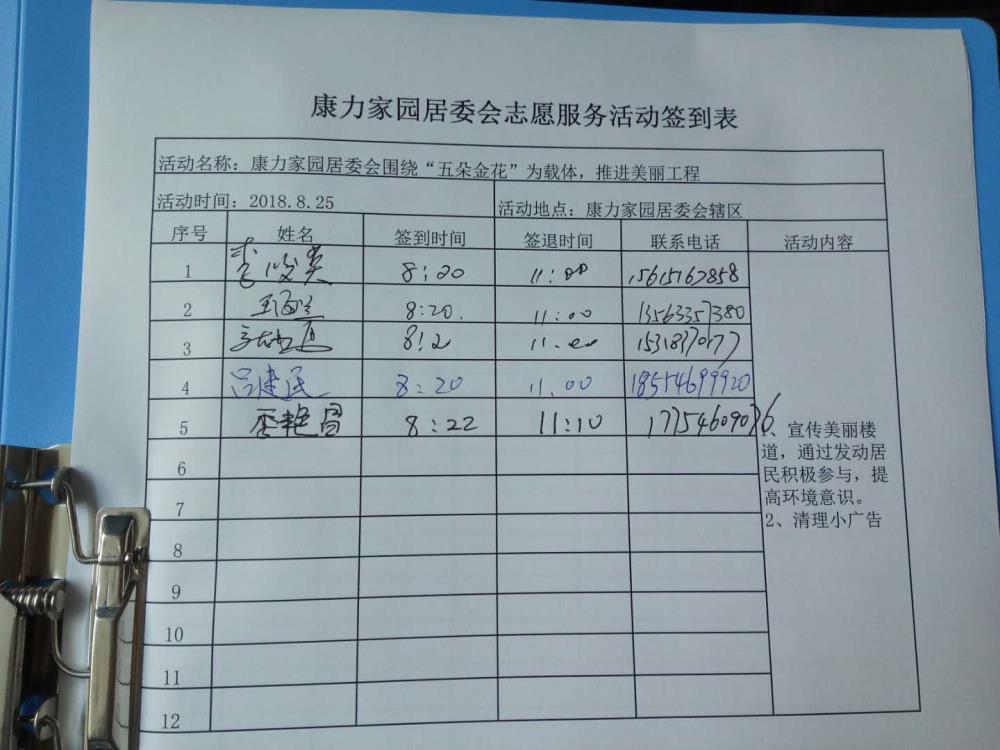 康力家园居委会志愿服务活动签到表
活动名称：康力家园居委会围绕“五朵金花”为载体，推进美丽工程
活动时间：2018.8.25 活动地点：康力家园居委会辖区
序号 姓名 签到时间 签退时间 联系电话 活动内容
1 李俊英 8:20 11:00 15615162858
2 8:20. 11:00 13563357380
3 8:2 11.00
4 吕建民 8:20 11.00 18554699920
5 8:22 11:10 17754609076
1、宣传美丽楼
道，通过发动居
民积极参与，提
高环境意识。
2、清理小广告
6
7
8
9
10
11
12